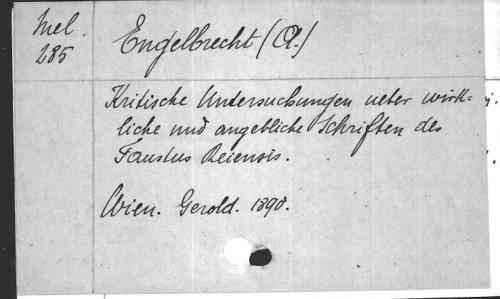 Mel.
285
Engelbrecht (A.)
Kritische Untersuchungen ueber wirk=
liche und angebliche Schriften des
Faustus Reiensis.
Wien. Gerold. 1890.